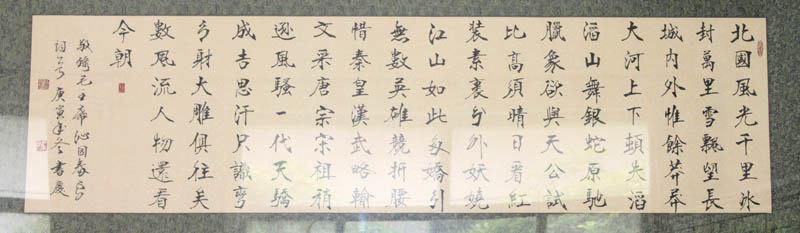 北國風光千里冰
封萬里雪飄望長
城內外惟餘莽莽
大河上下頓失滔
滔山舞銀蛇原馳
臘象欲與天公試
比高須晴日看紅
裝素裹分外妖嬈
江山如此多嬌引
無數英雄競折腰
惜秦皇漢武略輸
文采唐宗宋祖稍
遜風騷一代天驕
成吉思汗只識彎
弓射大雕俱往矣
數風流人物還看
今朝
敬錄毛主席沁園春雪
詞 庚寅年冬書慶